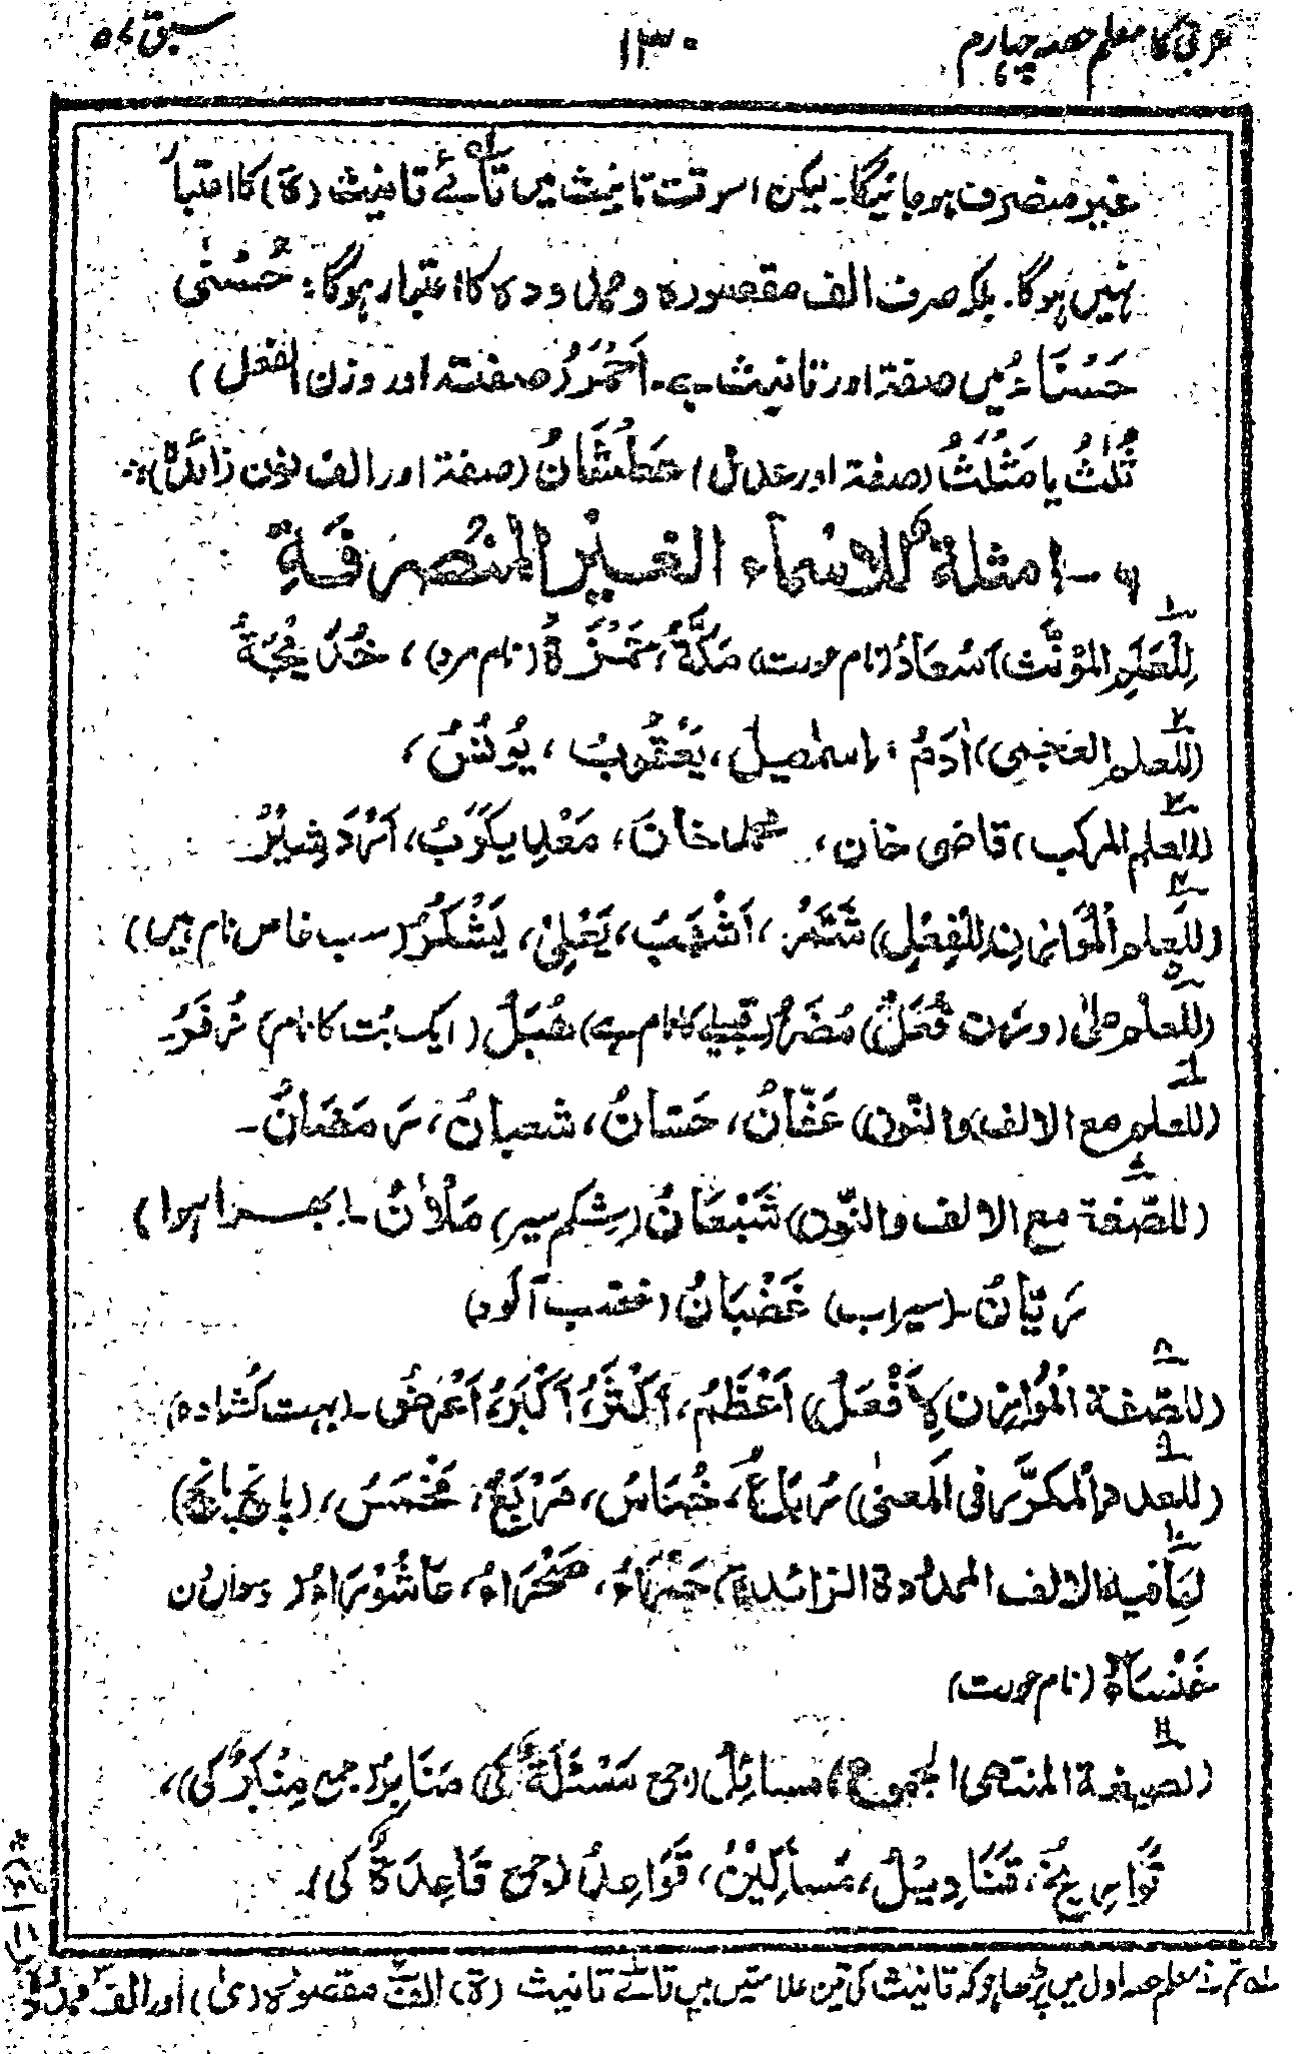 عربی کا معلم حصہ چہارم ۱۳۰ سبق ۵۷
غیر منصرف ہو جائیگا۔ لیکن اسوقت تانیث میں تائے تانیث (ۃ) کا اعتبار
نہیں ہوگا۔ بلکہ صرف الف مقصورہ و ممدودہ کا اعتبار ہوگا: حُسْنٰی
حَسْنَاءُ میں صفۃ اور تانیث ہے۔ اَحْمَرُ (صفت اور وزن افعل)
ثُلٰثُ یا مَثْلَثُ (صفۃ اور عدل) عَطْشَانُ (صفۃ اور الف نون زائدہ)؛
۶ -امثلة للاسْماء الغَیْرِ المُنصَرِفَةِ
۱
(لِلْعَلَمِ المُؤنَّث) سُعَادُ (نام عورت) مَکَّةُ، حَمْزَةُ (نام مرد)، خَدِیْجَةُ
۲
(للعلم العَجَمِی) اٰدَمُ، اِسمٰعیلُ، یَعْقُوبُ، یُونُسُ،
۳
(للعلم المرکب) قاضی خان، محمد خانَ، مَعْدِیکَرَبُ، اَرْدَشِیْرُ
۴
(للعلم المُوَازِنِ لِلْفِعْلِ) شَمَّرُ، اَشْهَبُ، یَعْلیٰ، یَشْکُرُ (سب خاص نام ہیں)
۵
(للعلم علیٰ (وزن فُعَلُ) مُضَرُ (قبیلے کا نام ہے) هُبَلُ (ایک بُت کا نام) زُفَرُ۔
۶
(للعلم مع الالف والنّون) عَفَّانُ، حَسَّانُ، شعبانُ، رَمَضَانُ۔
۷
(للصّفة مع الالف والنّون) شَبْعَانُ (شکم سیر) مَلْاٰنُ۔ (بھرا ہوا)
رَیَّانُ۔ (سیراب) غَضْبَانُ (غضب آلود)
۸
(للصّفة الْمُوَازِن لِاَفْعَلُ) اَعْظَمُ، اَکْثَرُ، اَکْبَرُ، اَعْرَضُ۔ (بہت کشادہ)
۹
(للعدد المُکَرَّر فی المعنیٰ) رُبَاعُ، خُمَاسُ، مَرْبَعُ، مَخْمَسُ، (پانچ پانچ)
۱۰
لِمَا فیه الالف الممدودة الزائدة) حَمْرَاءُ، صَحْرَاءُ، عَاشُوْرَاءُ (دسواں دن
خَنْسَاءُ (نام عورت)
۱۱
(لصیغة المنتهی الجموع) مسائِلُ (جمع مَسْئَلَةٌ کی) مَنَابِرُ (جمع مِنْبَرٌ کی)،
تَوَارِیْخُ، قَنَادِیْلُ، مَسَاکِیْنُ، قَوَاعِدُ (جمع قَاعِدَةٌ کی)۔
ٰ۱ تم نے معلم حصہ اول میں پڑھا ہے کہ تانیث کی تین علامتیں ہیں تائے تانیث (ۃ) الف مقصورہ (یٰ) اور الف ممدودہ